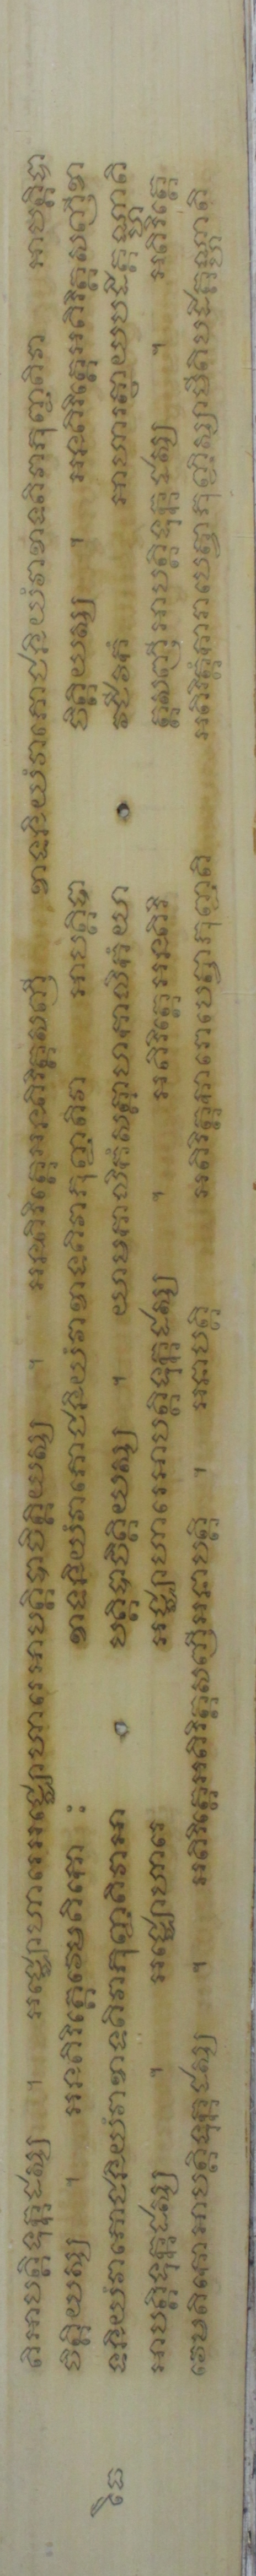 តិអាបត្តិទុក្កដស្ស ។ អជ្ឈោហារេអជ្ឈោហារេអាបត្តិបាចិត្តិយស្ស ។ អនតិរិត្តេអនតិរិត្តសញី ខាទនិយំវាភោជនិយំវាខាទតិវាភុញ្ជតិវា អាបត្តិបា
ចិត្តិយស្ស ។ អនតិរិត្តេវេមតិកោ ៈ ខាទនិយំវាភោជនិយំវាខាទតិវាភុញ្ជតិវា អាបត្តិបា ចិត្តិយស្ស ។ អនតិរិត្តេអតិរិត្តសញីខា
ទនិយំវាភោជនិយំវាខាទតិវាភុញ្ជតិវាអា បត្តិបាចិត្តិយស្ស ។ យាមកាលិកំសត្តាហកាលិកំយា វជីវកំ អាហារត្ថាយបដិគ្គណ្ហាតិ
អាបត្តិទុក្កដស្ស ។ អជ្ឈោហារេ អជ្ឈោហារេអាបត្តិទុក្កដស្ស ។ អតិរិត្តេអនតិរិ ត្តសញីអាបត្តិទុក្កដស្ស ។ អតិរិត្តេ
វេមតិកោអាបត្តិទុក្កដស្ស ។ អតិរិត្តេអតិរិត្តសញីអនាបត្តិ ។ អនាបត្តិ អតិរិត្តការាបេត្វាភុញ្ជតិ អតិរិត្តំការាបេត្វាភុញ្ជិស្សាមីតិបដិគ្គណ្ហាតិ